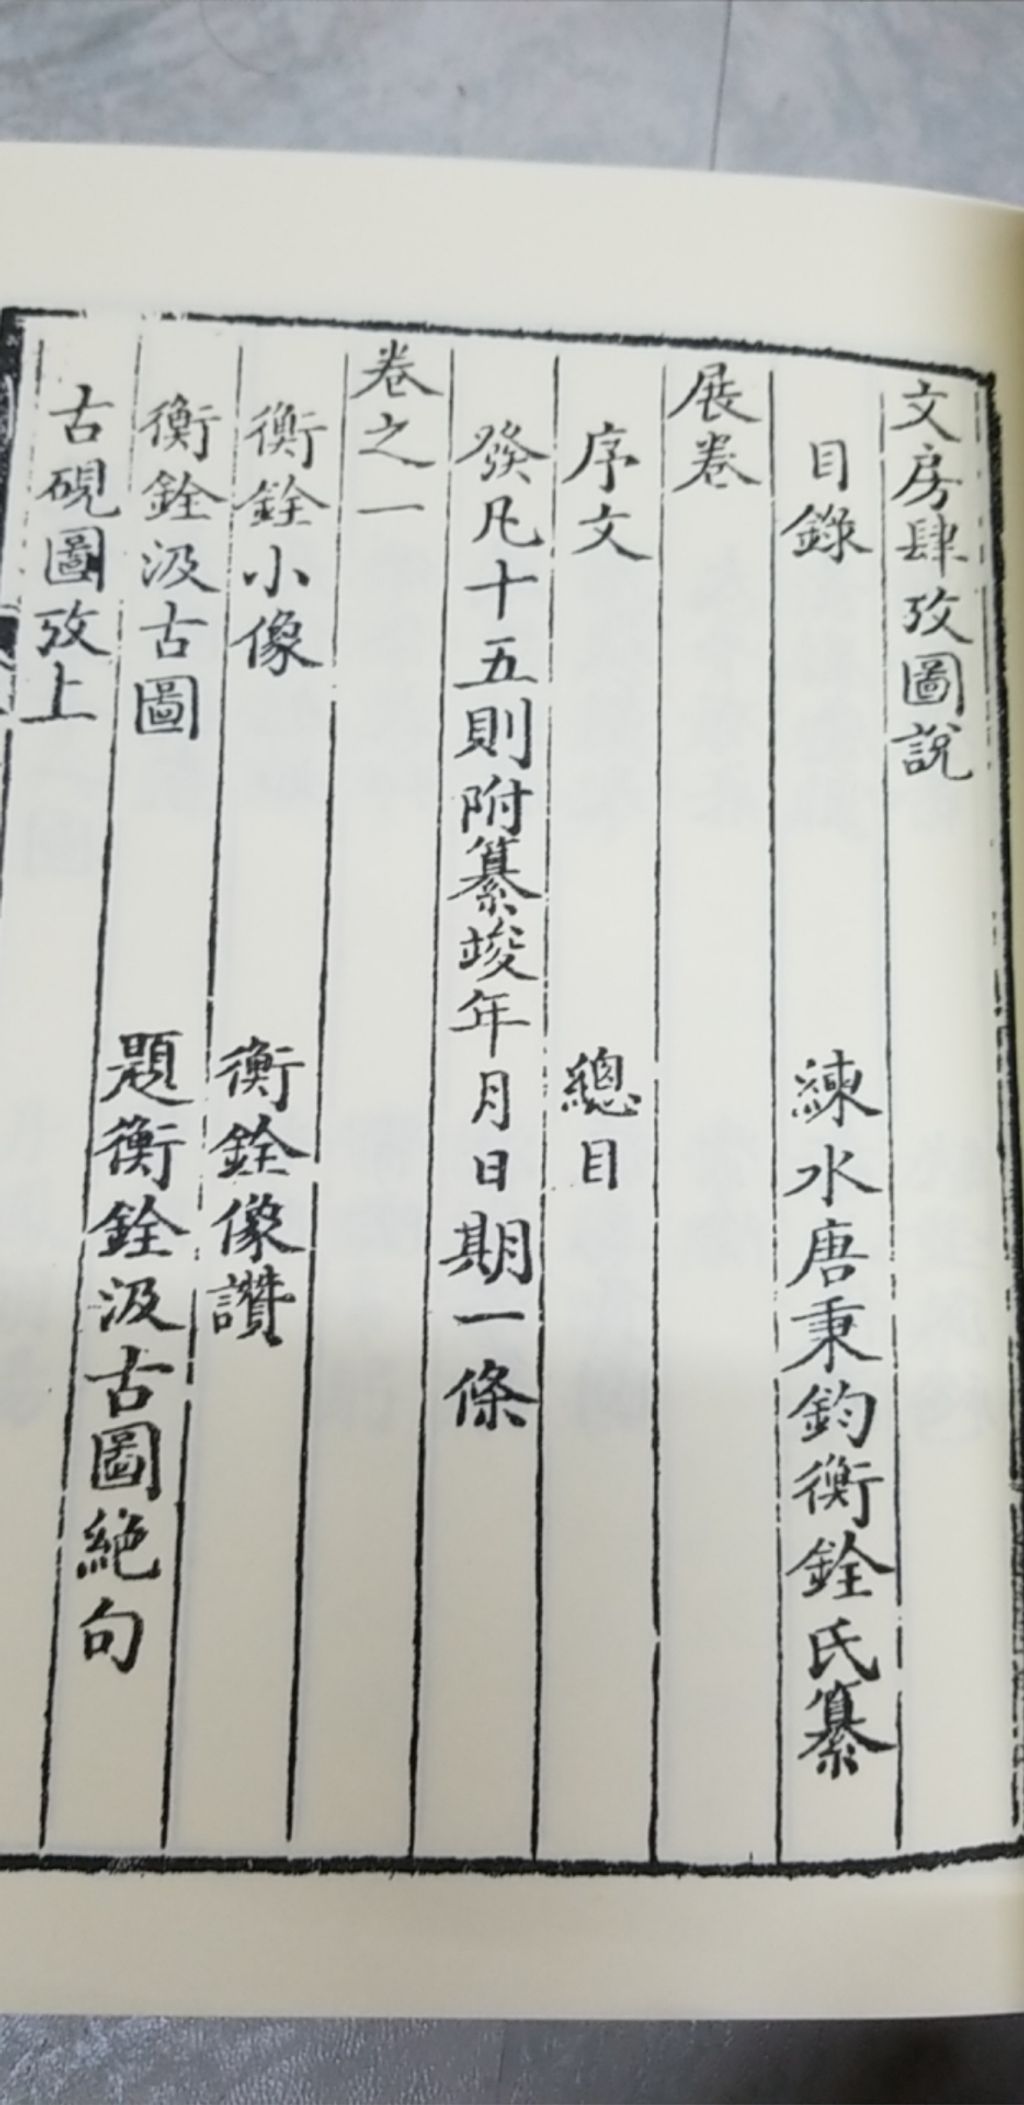 文房肆攷圖說
目錄　練水唐秉鈞衡銓氏纂
展卷
序文　總目
發凡十五則附纂竣年月日期一條
卷之一
衡銓小像　衡銓像讚
衡銓汲古圖　題衡銓汲古圖絕句
古硯圖攷上